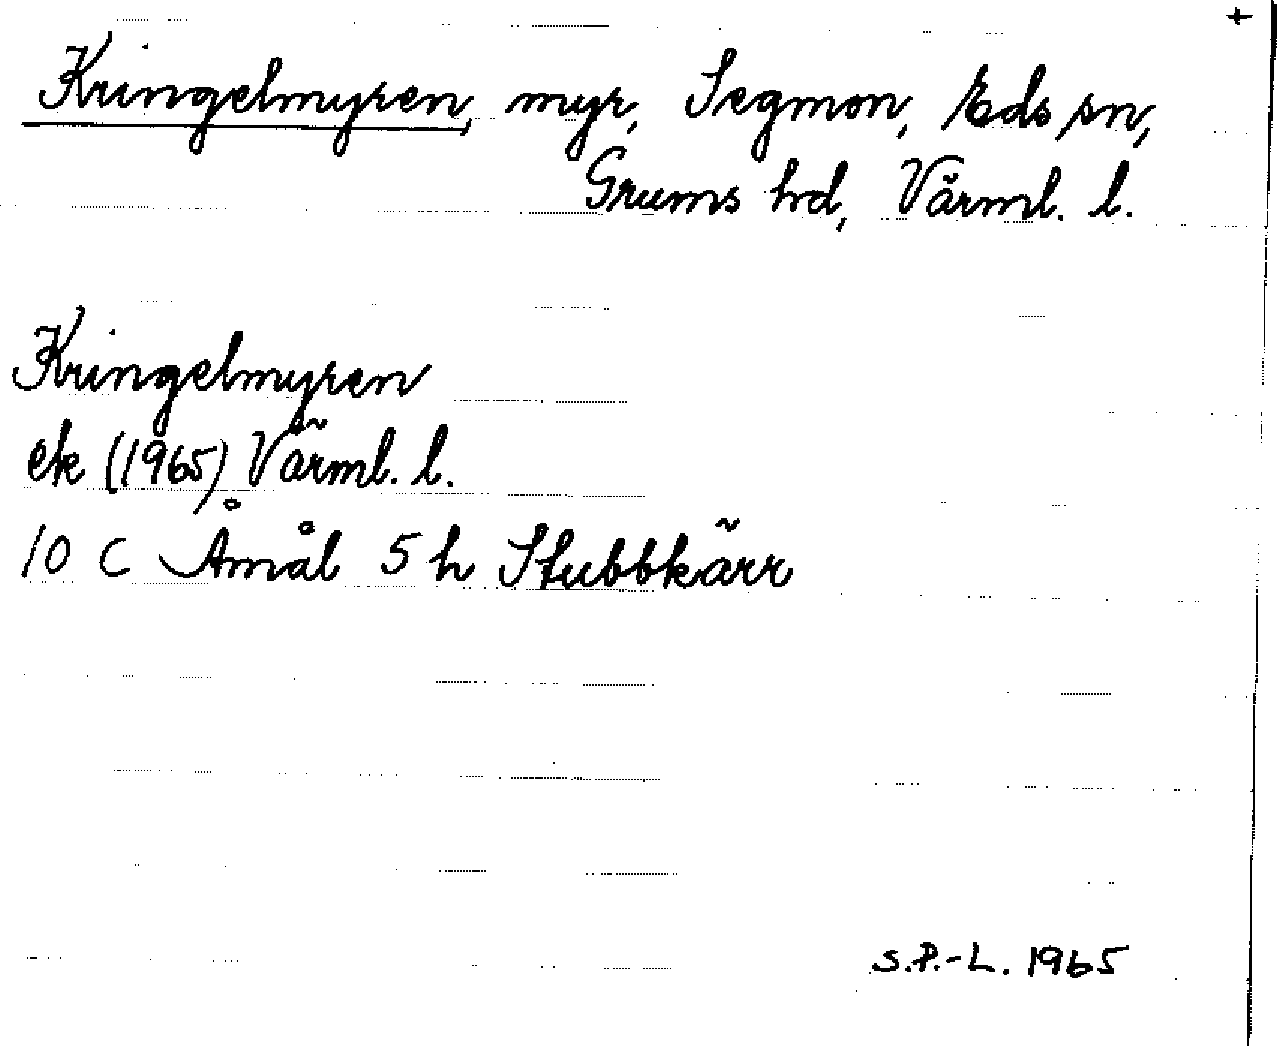 +
Kringelmyren, myr, Segmon, Eds sn,
Grums hd, Värml. l.
Kringelmyren
ek (1965) Värml. l.
10 C Åmål 5 h Stubbkärr
S.P.-L. 1965